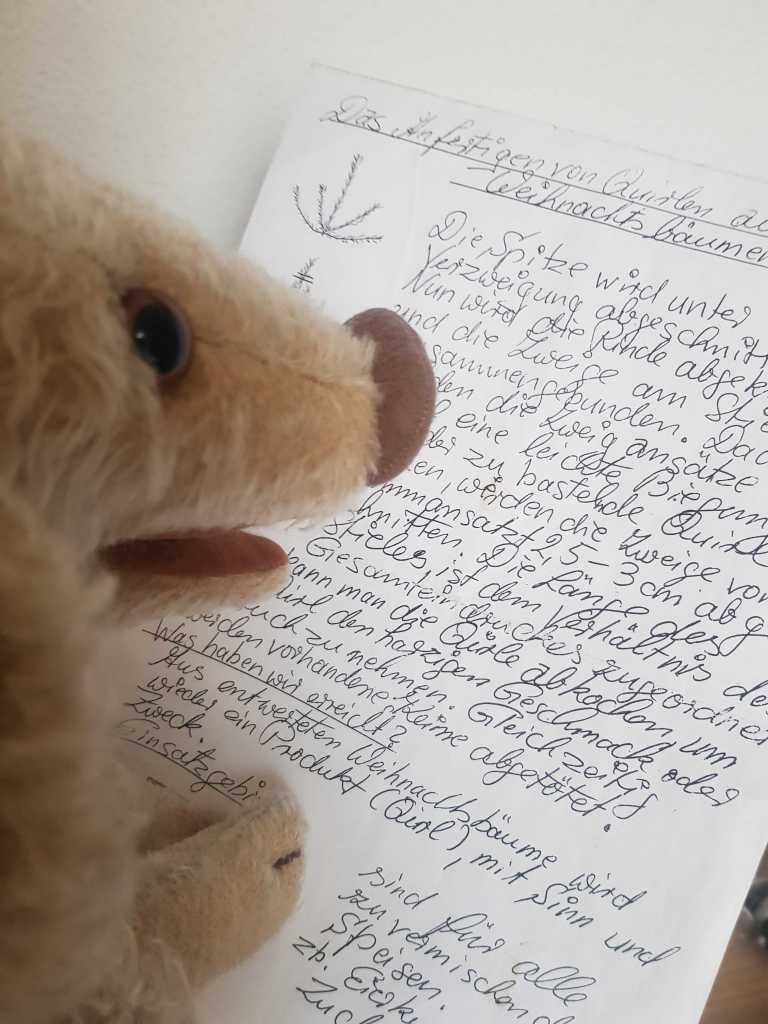 Das Anfertigen von Quirlen au
Weihnachtsbäumen
Die Spitze wird unter
Verzweigung abgeschnitt
Nun wird die Rinde abgek
und die Zweige am Sti
sammengebunden. Dad
den die Zweigansätze
eine leichte Biegun
der zu bastelnde Quirl
en, werden die Zweige vo
mmansatz 2,5-3cm abg
hnitten. Die Länge des
Stieles, ist dem Verhältnis de
Gesamteindruckes zugeordnet
kann man die Quirle abkochen, um
den harzigen Geschmack oder
uch zu nehmen. Gleichzeitig
werden vorhandene Keime abgetötet.
Was haben wir erreicht?
Aus entwerteten Weihnachtsbäume wird
wieder ein Produkt (Quirl), mit Sinn und
Zweck.
Einsatzgebi
sind für alle
zu vermischende
Speisen.
zb.